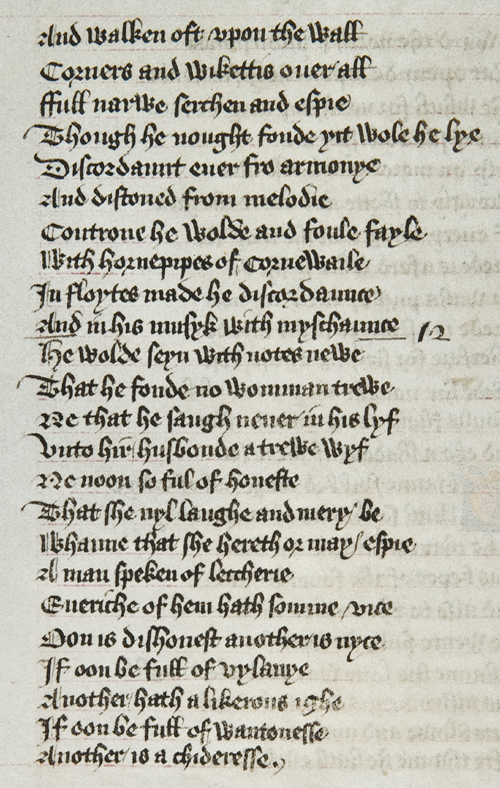 And walken oft vpon the wall
Corners and wikettis ouer all
ffull narwe serchen and espie
Though he nought fonde yit wole he lye
Discordaunt euer fro armonye
And distoned from melodie
Controue he wolde and foule fayle
With hornepipes of Cornewaile
In floytes made he discordaunce
And in his musyk with myschaunce 12
He wolde seyn with notes newe
That he fonde no womman trewe
Ne that he saugh neuer in his lyf
Vnto hir husbonde a trewe wyf
Ne noon so ful of honeste
That she nyl laughe and mery be
Whanne that she hereth or may espie
A man speken of leccherie
Eueriche of hem hath somme vice
Oon is dishonest another is nyce
If oon be full of vylanye
Another hath a likerous ighe
If oon be full of wantonesse
Another is a chideresse